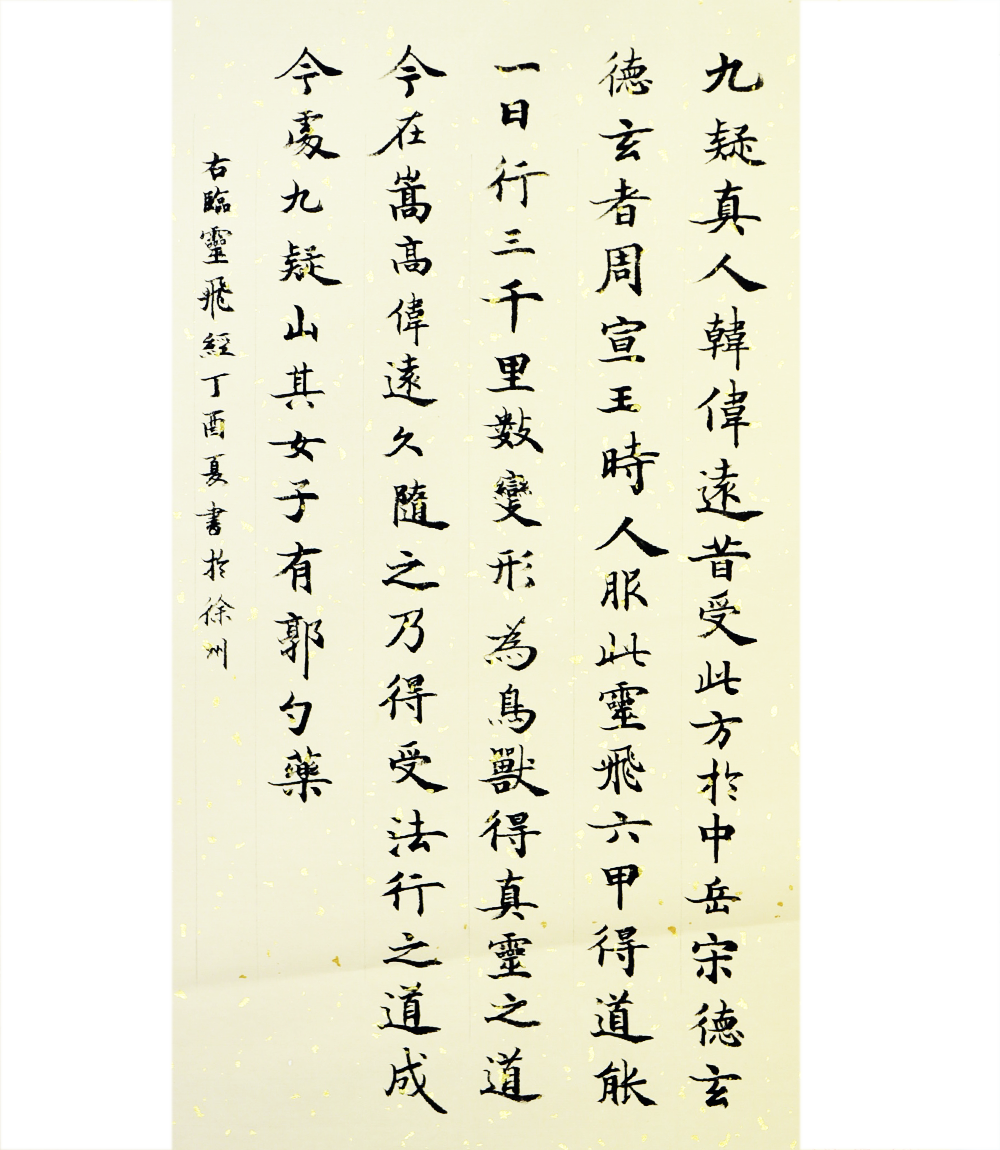 九疑真人韓偉遠昔受此方於中岳宋德玄
德玄者周宣王時人服此靈飛六甲得道能
一日行三千里數變形為鳥獸得真靈之道
今在嵩高偉遠久隨之乃得受法行之道成
今處九疑山其女子有郭勺藥
右臨靈飛經丁酉夏書於徐州